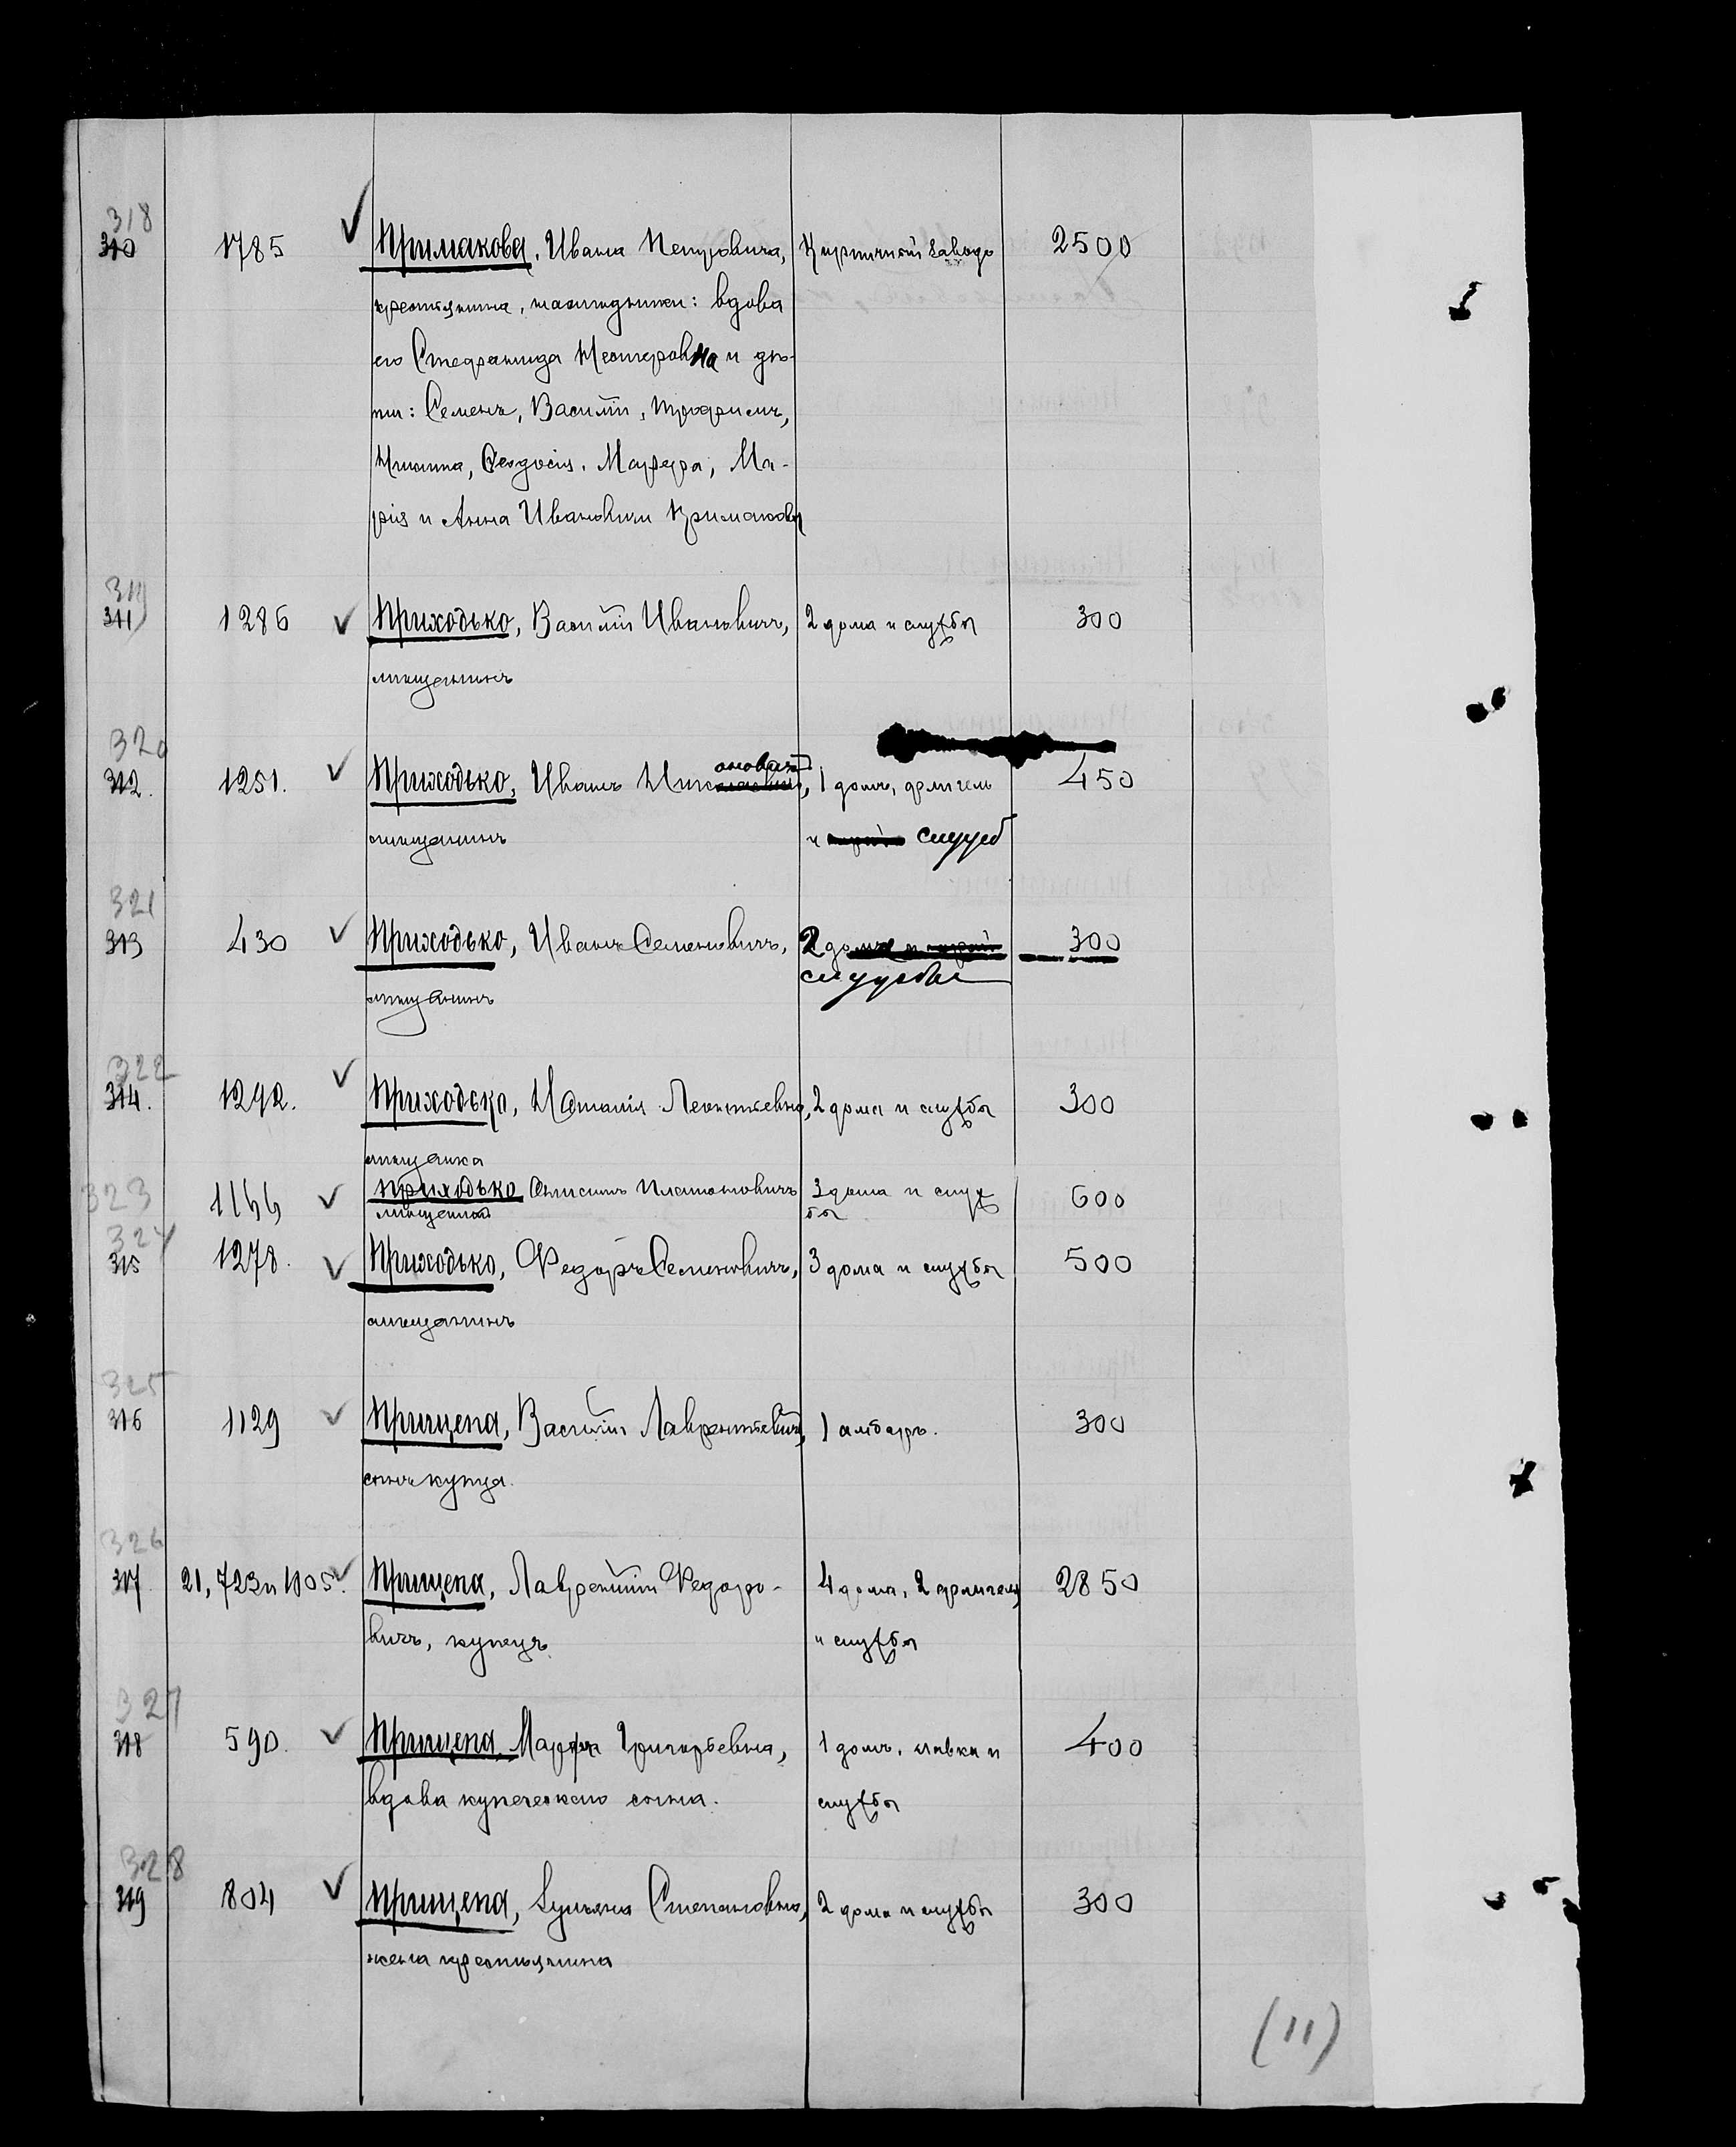 318
310 1785 Примакова, Ивана Петровича, Кирпичный заводъ 2500
крестьянина, наслѣдники: вдова
его Стефанида Нестеровна и дѣ-
ти: Семенъ, Василій, Трофимъ,
Никита, Феодосія, Марфа, Ма-
рія и Анна Ивановичи Примаковы
319
311 1286 Приходько, Василій Ивановичъ, 2 дома и службы 300
мѣщанинъ
320
312. 1251. Приходько, Иванъ 1 домъ, флигель 450
мѣщанинъ и служб
321
313 430 Приходько, Иванъ Семеновичъ, 2 300
службы
мѣщанинъ
322
314. 1292. Приходько, Наталія Леонтьевна, 2 дома и службы 300
мѣщанка
323 1166 Приходько Онисимъ Платоновичъ 3 дома и служ 600
мѣщанинъ бы
324
315 1278. Приходько, Федоръ Семеновичъ, 3 дома и службы 500
мѣщанинъ
325
316 1129 Прищепа, Василій Лаврентьевичъ, 1 амбаръ. 300
сынъ купца.
326
317 21, 723 и 1105. Прищепа, Лаврентій Федоро- 4 дома, 2 флигеля 2850
вичъ, купецъ. и службы
327
318 590. Прищепа, Марфа Григорьевна, 1 домъ, лавка и 400
вдова купеческаго сына. службы
328
319 804 Прищепа, Степановна, 2 дома и службы 300
жена крестьянина
(11)